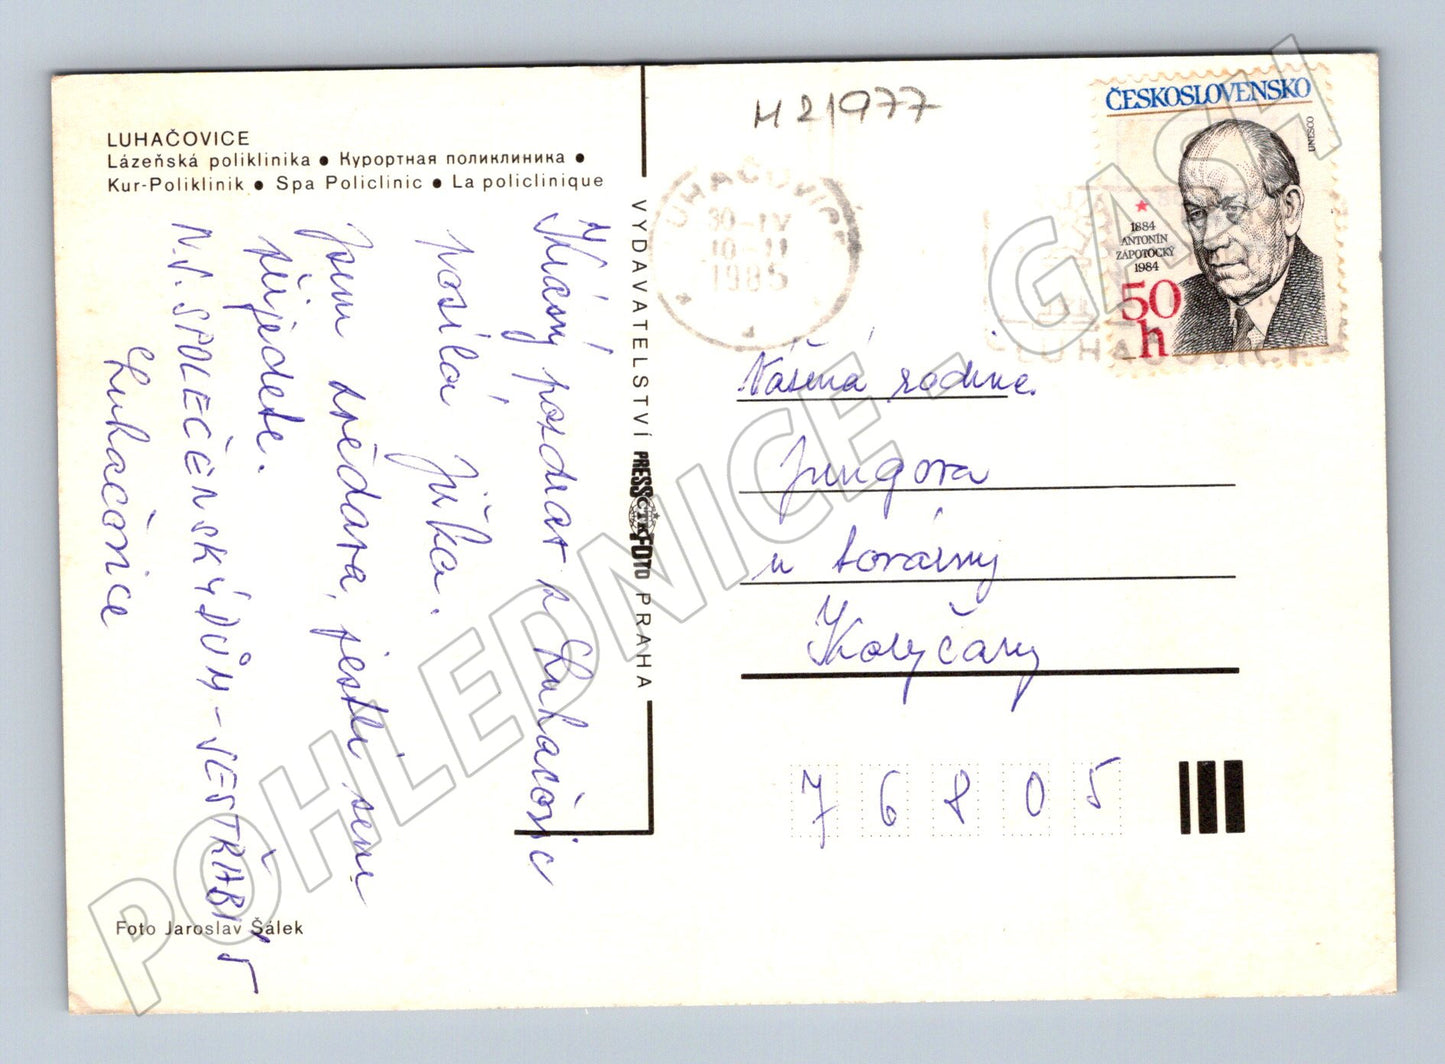 LUHAČOVICE
Lázeňská poliklinika ● Курортная поликлиника ●
Kur-Poliklinik ● Spa Policlinic ● La policlinique
Krásný pozdrav z Luhačovic
posílá Jiřka.
Jsem zvědava, jestli sem
přijedete.
N.S. SPOLEČENSKÝ DŮM - SESTRA
Luhačovice
Foto Jaroslav Šálek
VYDAVATELSTVÍ PRESSFOTO PRAHA
ČTK
M 21977
LUHAČOVICE
30-IV
10-11
1985
ČESKOSLOVENSKO
UNESCO
1884
ANTONÍN
ZÁPOTOCKÝ
1984
50
h
LUHAČOVICE
Vážená rodina
Jungova
u továrny
Koryčany
76805
POHLEDNICE - GASH